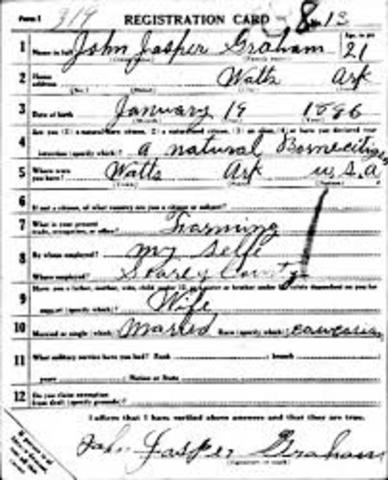 Form 1 319 REGISTRATION CARD 8-13
1 Name in full John Jasper Graham Age, in yrs 21
2 Home address Watts Ark
(No.) (Street)
3 Date of birth January 19 1896
4 Are you (1) a natural-born citizen, (2) a naturalized citizen, (3) an alien, (4) or have you declared your
intention (specify which)? a natural Borneciticn
5 Where were you born? Watts Ark U.S.A
(Town) (State) (Nation)
6 If not a citizen, of what country are you a citizen or subject?
7 What is your present trade, occupation, or office? Farming
8 By whom employed? My Selfe
Where employed? Searcy County
9 Have you a father, mother, wife, child under 12, or a sister or brother under 12, solely dependent on you for
support (specify which)? Wife
10 Married or single (which)? Maried Race (specify which)? caucasian
11 What military service have you had? Rank ; branch
years ; Nation or State
12 Do you claim exemption from draft (specify grounds)?
I affirm that I have verified above answers and that they are true.
John Jasper Graham
(Signature or mark)